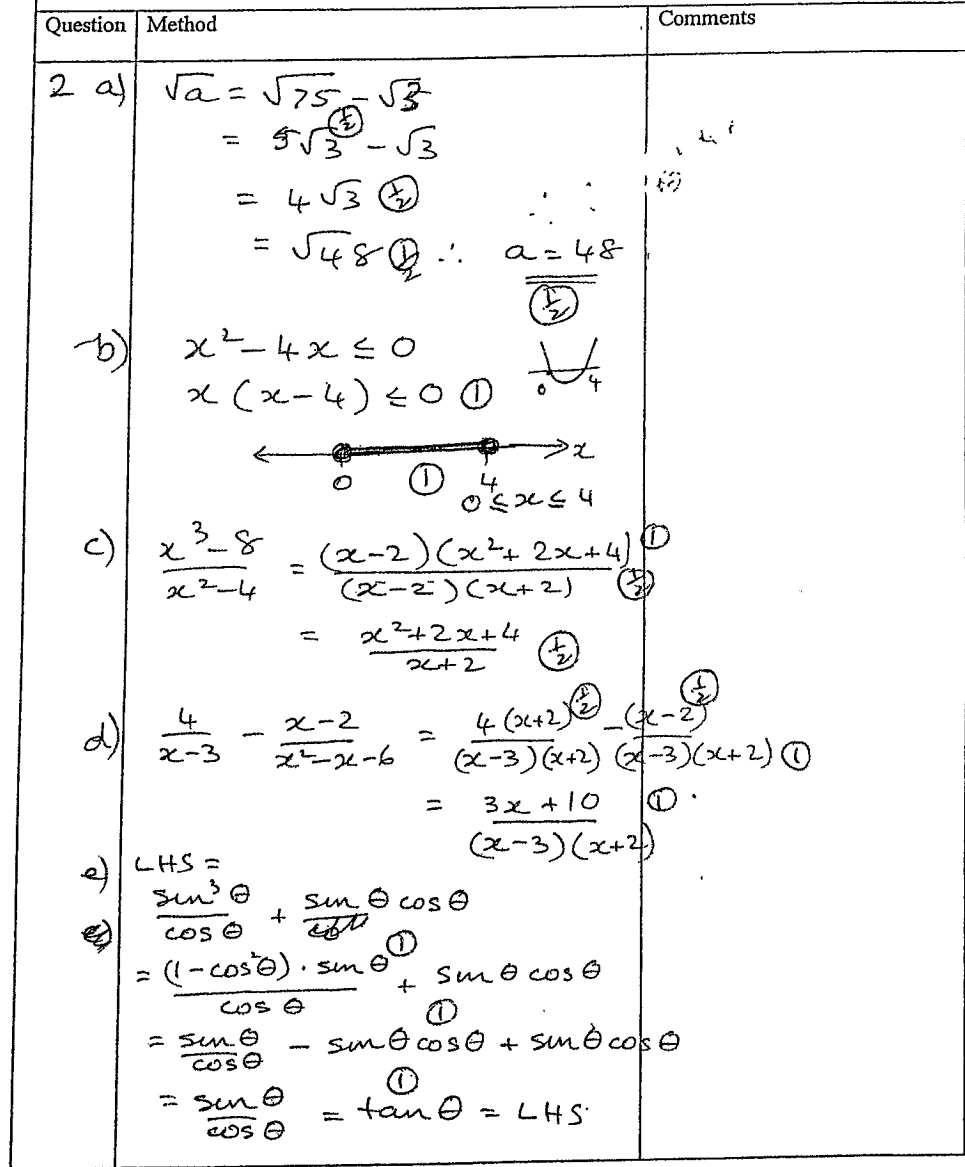 Question Method Comments
2 a) √a = √75 - √3
= 5√3 ½ - √3
= 4√3 ½
= √48 ½ ∴ a = 48
½
b) x² - 4x ≤ 0
x (x - 4) ≤ 0 ① 0 4
0 ① 4 x
0 ≤ x ≤ 4
c) x³ - 8 / x² - 4 = (x-2)(x² + 2x + 4) ① / (x-2)(x+2) ½
= x² + 2x + 4 / x + 2 ½
d) 4 / x-3 - x-2 / x²-x-6 = 4(x+2) ½ / (x-3)(x+2) - (x-2) ½ / (x-3)(x+2) ①
= 3x + 10 / (x-3)(x+2) ①
e) LHS =
sin³ θ / cos θ + sin θ cos θ
= (1 - cos²θ) . sin θ ① / cos θ + sin θ cos θ
①
= sin θ / cos θ - sin θ cos θ + sin θ cos θ
①
= sin θ / cos θ = tan θ = LHS